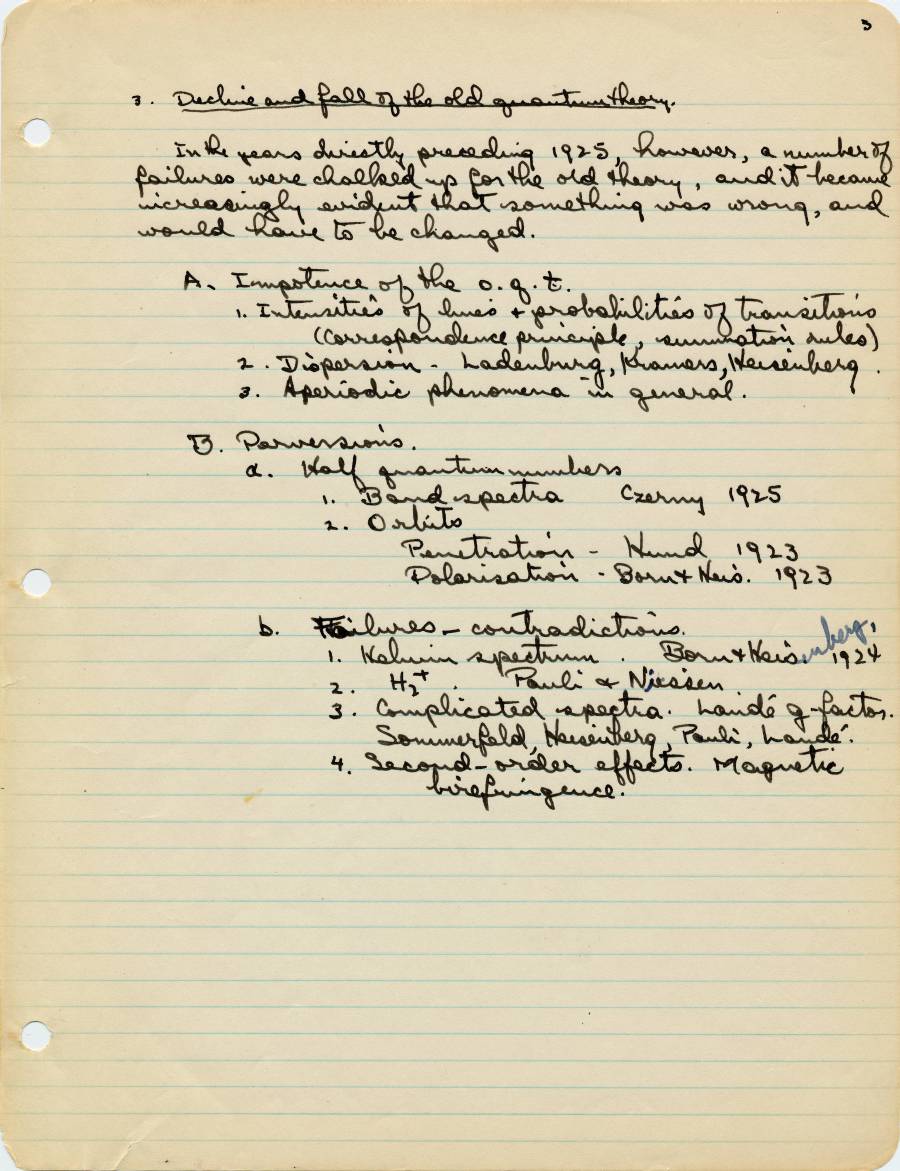 3
3. Decline and fall of the old quantum theory.
In the years directly preceding 1925, however, a number of
failures were chalked up for the old theory, and it became
increasingly evident that something was wrong, and
would have to be changed.
A. Impotence of the o.q.t.
1. Intensities of lines + probabilities of transitions
(Correspondence principle, summation rules)
2. Dispersion - Ladenburg, Kramers, Heisenberg.
3. Aperiodic phenomena in general.
B. Perversions.
a. Half quantum numbers
1. Band spectra Czerny 1925
2. Orbits
Penetration - Hund 1923
Polarisation - Born + Heis. 1923
b. Failures - contradictions.
1. Helium spectrum. Born + Heisenberg, 1924
2. H₂⁺. Pauli & Niessen
3. Complicated spectra. Landé g-factor.
Sommerfeld, Heisenberg, Pauli, Landé.
4. Second-order effects. Magnetic
birefringence.